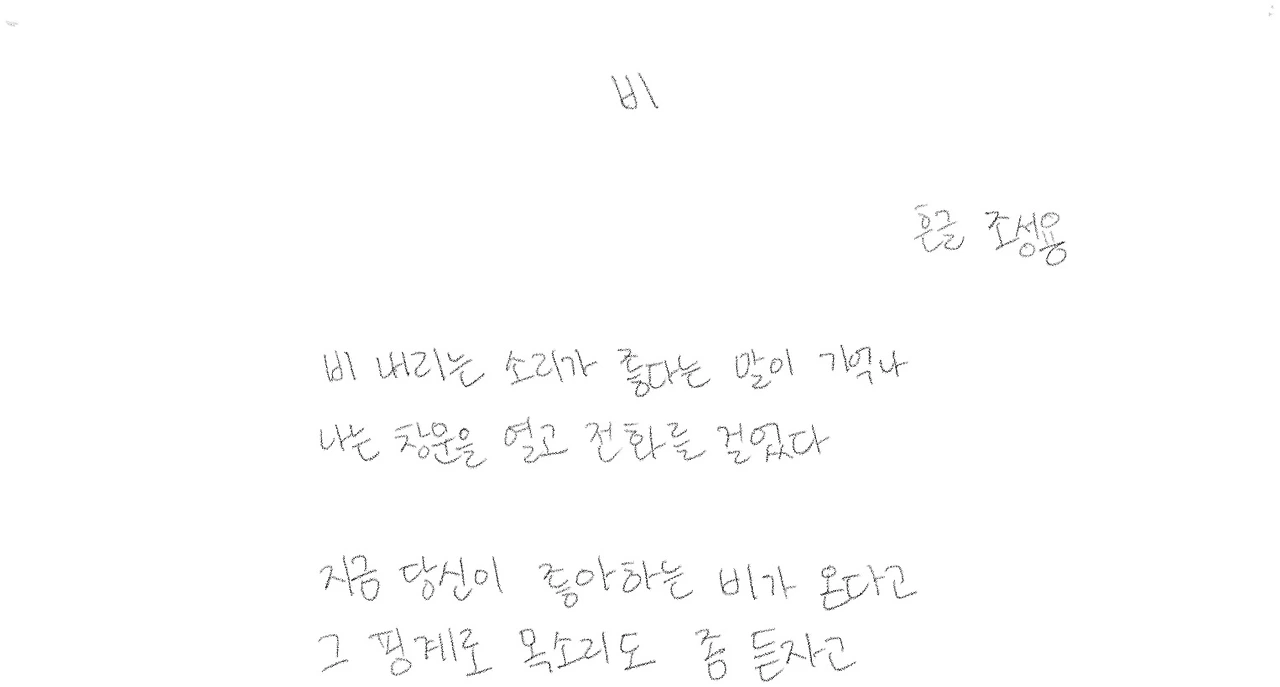 비
흔글 조성용
비 내리는 소리가 좋다는 말이 기억나
나는 창문을 열고 전화를 걸었다
지금 당신이 좋아하는 비가 온다고
그 핑계로 목소리도 좀 듣자고